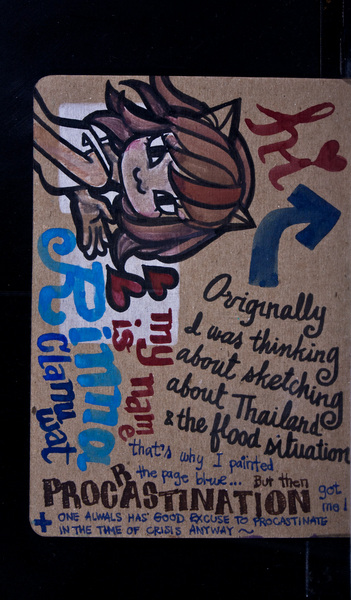 hi
my name
is
Rinma
Originally
I was thinking
about sketching
about Thailand
& the flood situation
that's why I painted
the page blue... But then
R
PROCASTINATION got
me!
+ ONE ALWALS HAS GOOD EXCUSE TO PROCASTINATE
IN THE TIME OF CRISIS ANYWAY ~